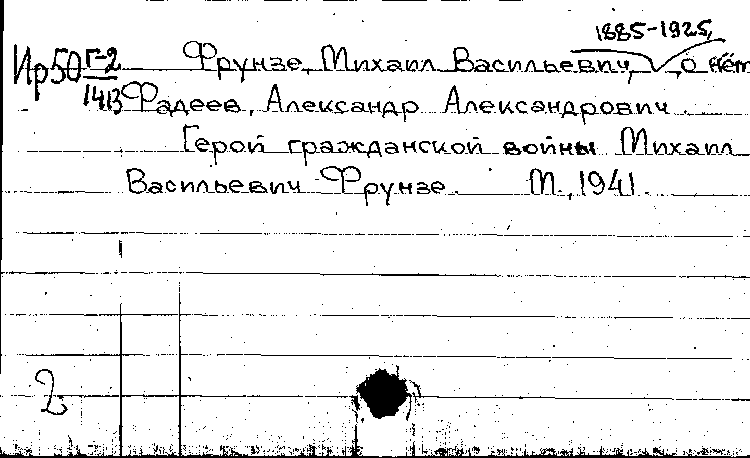 1885-1925,
Ир50 Г-2 Фрунзе, Михаил Васильевич, о нём
1413 Фадеев, Александр Александрович.
Герой гражданской войны Михаил
Васильевич Фрунзе. М., 1941.
2